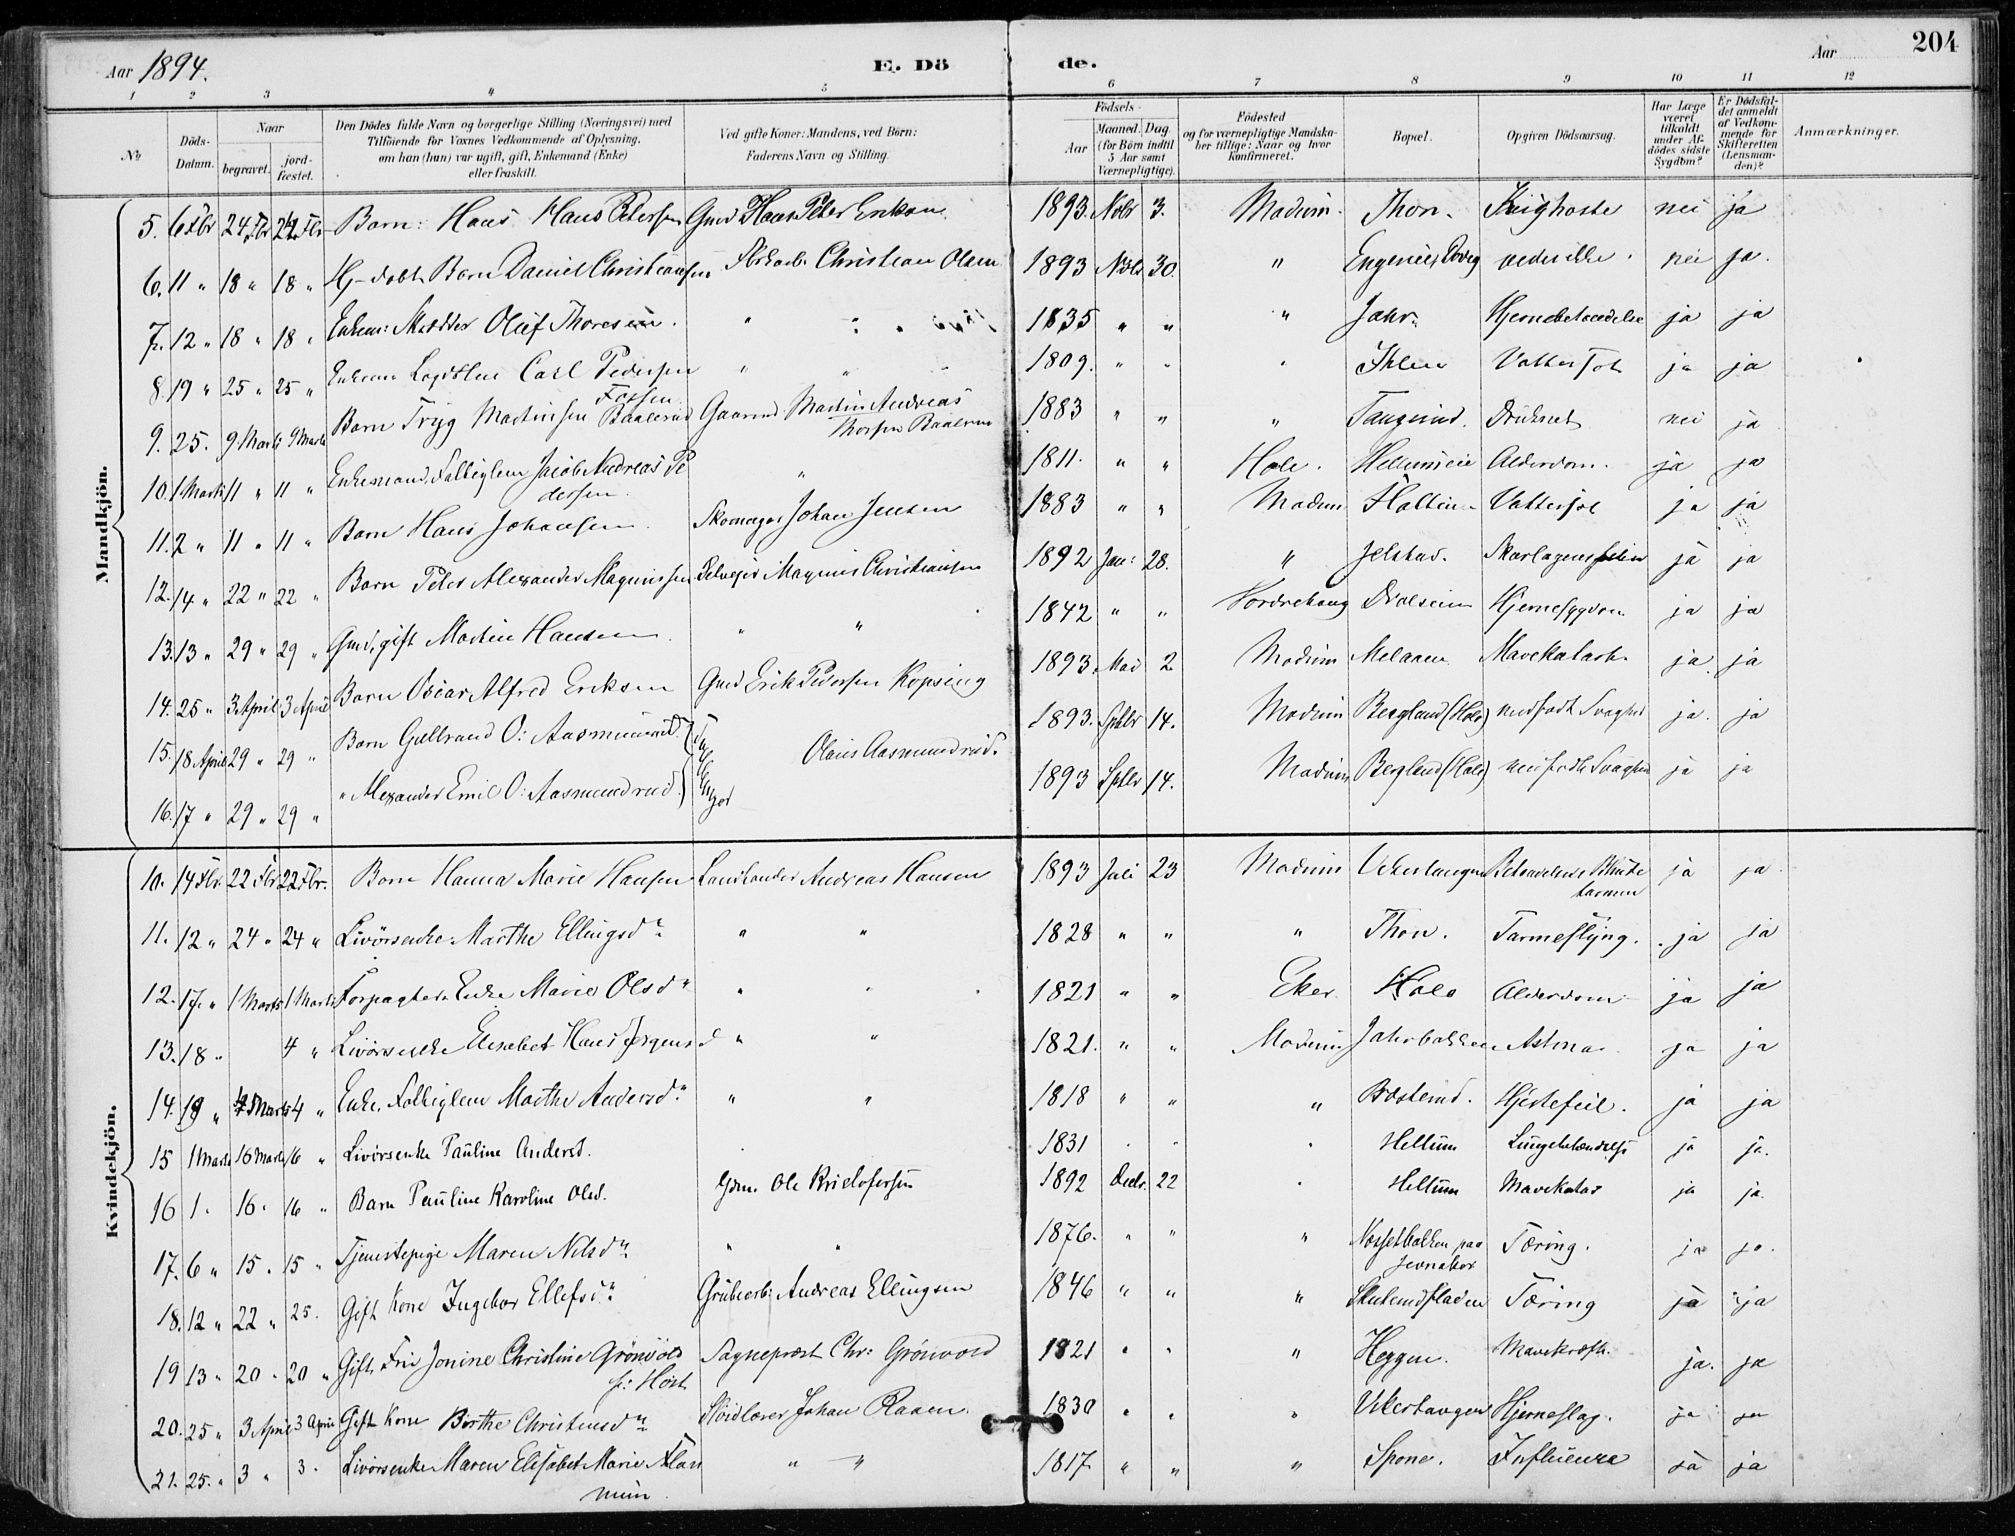 Aar 1894. E. Dö de. Aar 204
1 2 3 4 5 6 7 8 9 10 11 12
№ Döds-Datum. Naar begravet. jordfæstet. Den Dödes fulde Navn og borgerlige Stilling (Næringsvei) med Tilföiende for Voxnes Vedkommende af Oplysning, om han (hun) var ugift, gift, Enkemand (Enke) eller fraskilt. Ved gifte Koner: Mandens, ved Börn: Faderens Navn og Stilling. Födsels- Aar Maaned. Dag. (for Börn indtil 5 Aar samt Værnepligtige). Födested og for værnepligtige Mandskaber tillige: Naar og hvor konfirmeret. Bopæl. Opgiven Dödsaarsag. Har Læge været tilkaldt under Afdödes sidste Sygdom? Er Dödsfaldet anmeldt af Vedkommende for Skifteretten (Lensmanden)? Anmærkninger.
Mandkjön.
5. 6 Fbr 24 Fbr 24 Fbr Barn: Hans Hans Petersen Gmd Hans Peter Eriksen 1893. Nvbr 3. Modum. Thon. Kighoste nei ja
6. 11 " 18 " 18 " Hj-døbt Barn Daniel Christiansen Christian Olsen 1893 Nvbr 30. " nei ja.
7. 12 " 18 " 18 " Enkem: Skrædder Oluf Thoresen. " 1835 " " " Jahr. Hjernebetændelse ja ja
8. 19 " 25 " 25 " Enkem Carl Pedersen " 1809. " " " Ihlen Vattersot ja ja
9. 25. 9 Marts 9 Marts Barn Tryg Martinsen Fossen Baalerud Gaarmd Martin Andreas Thorsen Baalerud 1883 " " " Tangerud. Druknet nei ja
10. 1 Marts 11 " 11 " Enkemand, Fattiglem Jacob Andreas Pedersen. " 1811. " " Hole. Hellumseie Alderdom. ja ja
11. 2 " 11 " 11 " Barn Hans Johansen. Skomager Johan Jensen 1883 " " Modum Vattersot ja ja
12. 14 " 22 " 22 " Barn Peter Alexander Magnussen Selveier Magnus Christiansen 1892 Jan: 28. " Jelstad. Skarlagensfeber ja ja
13. 13 " 29 " 29 " Gmd, gift Martin Hansen. " " 1842 " " Nordrehaug Hjernesygdom ja ja
14. 25 " 3 April 3 April Barn Oscar Alfred Eriksen Gmd Erik Pedersen Kopseng 1893. Mai 2 Modum Melaaen Mavekatarh. ja. ja
15. 18 April 29 " 29 " Barn Gullrand O: Aasmundrud. Tvillinger Olaus Aasmundrud. 1893. Sptbr 14. Modum Bergland (Hole) medfødt Svaghed ja. ja
16. 17 " 29 " 29 " " Alexander Emil O: Aasmundrud 1893 Sptbr 14. Modum Bergland (Hole) medfødt Svaghed ja ja
Kvindekjön.
10. 14 Fbr. 22 Fbr 22 Fbr. Barn Hanna Marie Hansen Landhandler Andreas Hansen 1893 Juli 23 Modum Vikertangen Betændelse i Blindetarmen ja ja.
11. 12 " 24 " 24 " Livørsenke Marthe Ellingsdr " " 1828 " " " Thon. Tarmeslyng. ja ja
12. 17. " 1 Marts 1 Marts Forpagter Enke Marie Olsdr " " 1821 " " Eker. Hole Alderdom ja ja
13. 18 " 4 " Livørsenke Elisabet Hans Jørgensd " " 1821. " " Modum Jahrbakken Astma. ja ja
14. 19 " 4 Marts 4 " Enke, Fattiglem Marthe Andersdr " " 1818 " " " Hjertefeil. ja ja
15 1 Marts 16 Marts 16 " Livørsenke Pauline Andersd. 1831 " " " Hellum Lungebetændelse ja ja.
16 1. 16. 16 " Barn Pauline Karoline Olsd. Gdm. Ole Kristofersen 1892 Decbr. 22 " Hellum Mavekatar ja ja.
17. 6 " 15 " 15 " Tjenestepige Maren Nilsdr " " 1876. " " " paa Jevnaker Tæring. ja ja.
18. 12 " 22 " 25. Gift Kone Ingebor Ellefsdr Grubearb: Andreas Ellingsen 1846 " " " Skuterudfladen Tæring ja ja
19 13 " 20 " 20 " Gift, Fru Jonine Christine Grönvold f: Høst Sogneprest Chr: Grönvold 1821 " " " Heggen. Mavekræft. ja. ja
20. 25 " 3 April 3 April Gift Kone Birthe Christensdr Johan Raaen. 1830 " " " Vikertangen Hjerneslag. ja ja
21. 25. " 3 " 3 " Livørsenke Maren Elisabet Marie Flannum " " 1817. " " " Spone. Influenza ja ja